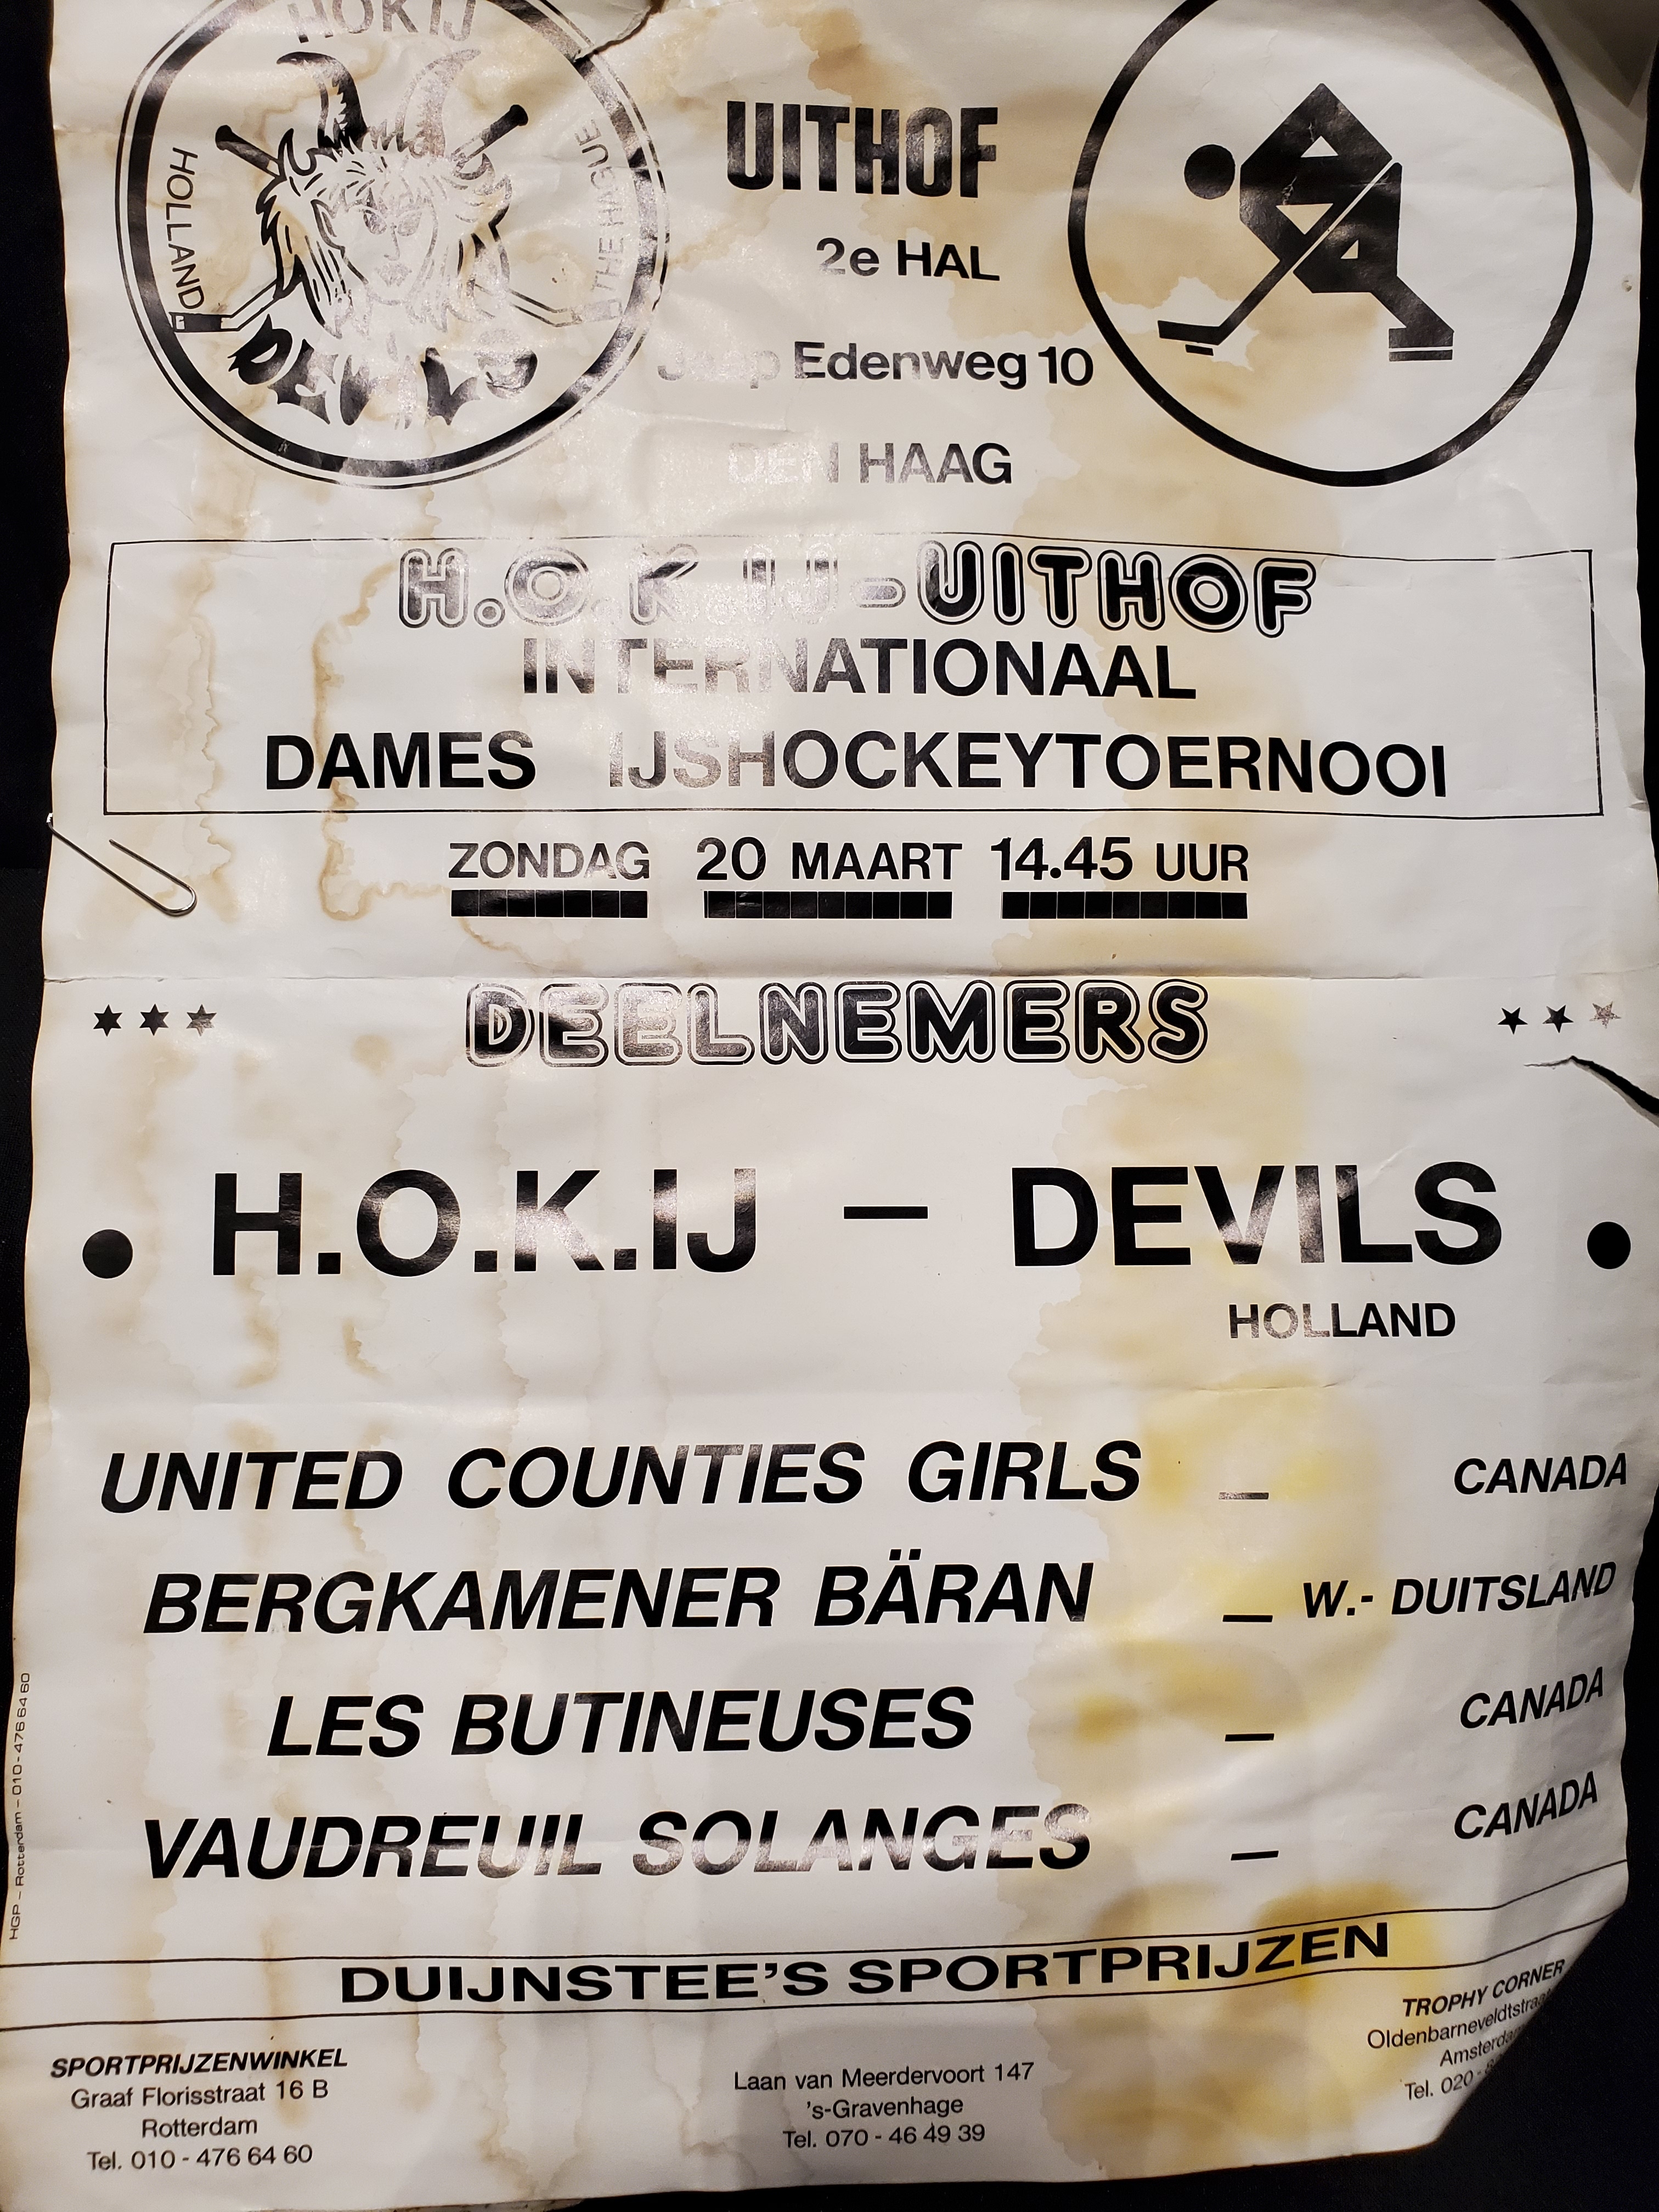 HOKIJ
HOLLAND
THE HAGUE
DEVILS
UITHOF
2e HAL
Jaap Edenweg 10
DEN HAAG
H.O.K.IJ-UITHOF
INTERNATIONAAL
DAMES IJSHOCKEYTOERNOOI
ZONDAG 20 MAART 14.45 UUR
DEELNEMERS
H.O.K.IJ – DEVILS
HOLLAND
UNITED COUNTIES GIRLS – CANADA
BERGKAMENER BÄRAN – W.- DUITSLAND
LES BUTINEUSES – CANADA
VAUDREUIL SOLANGES – CANADA
HGP – Rotterdam – 010 - 476 64 60
DUIJNSTEE'S SPORTPRIJZEN
SPORTPRIJZENWINKEL
Graaf Florisstraat 16 B
Rotterdam
Tel. 010 - 476 64 60
Laan van Meerdervoort 147
's-Gravenhage
Tel. 070 - 46 49 39
TROPHY CORNER
Oldenbarneveldtstraat
Amsterdam
Tel. 020 -